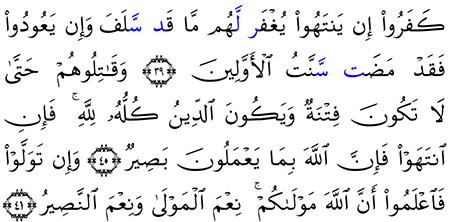 كَفَرُواْ إِن يَنتَهُواْ يُغْفَر لَّهُم مَّا قَد سَّلَفَ وَإِن يَعُودُواْ
فَقَدْ مَضَت سُّنَّتُ الْأَوَّلِينَ ٣٩ وَقَٰتِلُوهُمْ حَتَّىٰ
لَا تَكُونَ فِتْنَةٌ وَيَكُونَ الدِّينُ كُلُّهُۥ لِلَّهِۚ فَإِنِ
انتَهَوْاْ فَإِنَّ اللَّهَ بِمَا يَعْمَلُونَ بَصِيرٌ ٤٠ وَإِن تَوَلَّوْاْ
فَاعْلَمُواْ أَنَّ اللَّهَ مَوْلَىٰكُمْۚ نِعْمَ الْمَوْلَىٰ وَنِعْمَ النَّصِيرُ ٤١